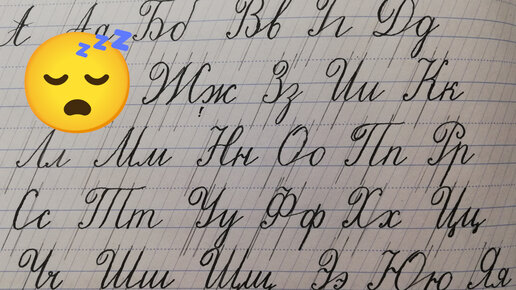 А Аа Бб Вв Гг Дд
Жж Зз Ии Кк
Лл Мм Нн Оо Пп Рр
Сс Тт Уу Фф Хх Цц
Чч Шш Щщ Ээ Юю Яя